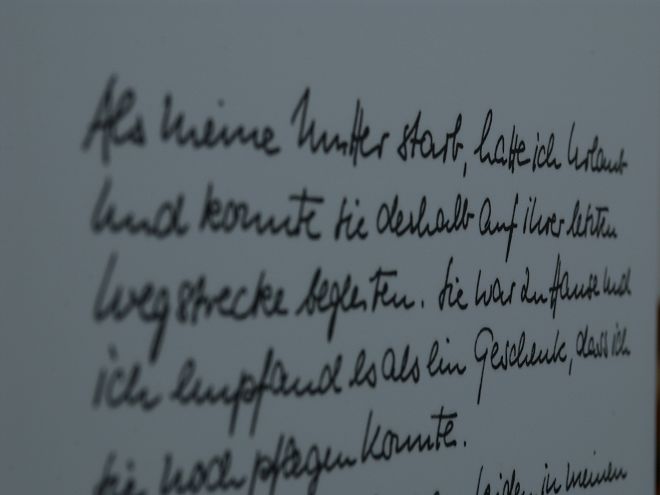 Als meine Mutter starb, hatte ich Urlaub
und konnte sie deshalb auf ihrer letzten
Wegstrecke begleiten. Sie war zu Hause und
ich empfand es als ein Geschenk, dass ich
sie noch pflegen konnte.
leiden in meinen